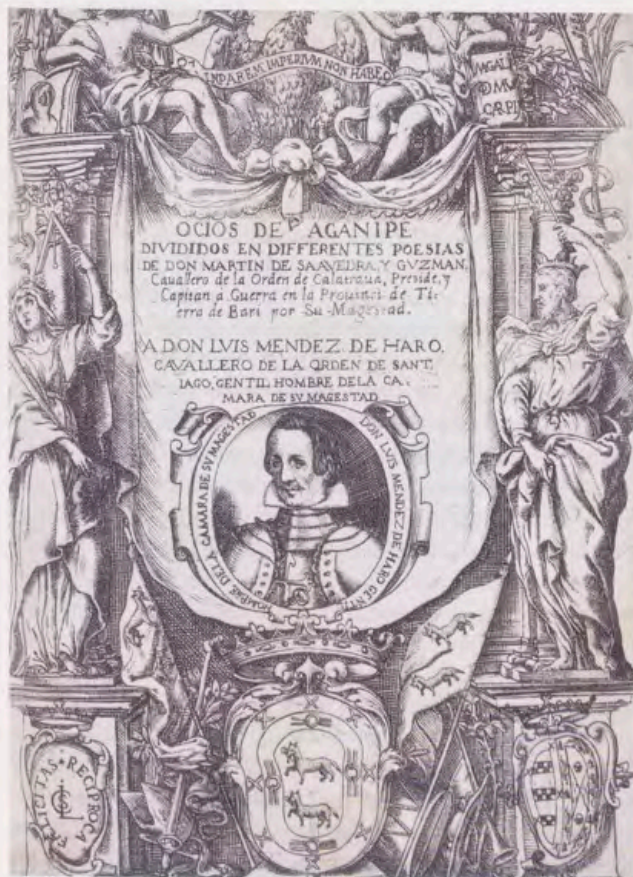 IN PAREM IMPERIVM NON HABEO
OCIOS DE AGANIPE
DIVIDIDOS EN DIFFERENTES POESIAS
DE DON MARTIN DE SAAVEDRA, Y GVZMAN,
Cauallero de la Orden de Calatraua, Preside, y
Capitan a Guerra en la Prouinci de Ti:
erra de Bari por Su Magestad.
A DON LVIS MENDEZ DE HARO,
CAVALLERO DE LA ORDEN DE SANT
IAGO, GENTIL HOMBRE DE LA CA,
MARA DE SV MAGESTAD
DON LVIS MENDEZ DE HARO GENTIL
HOMBRE DE LA CAMARA DE SV MAGESTAD
FELICITAS RECIPROCA